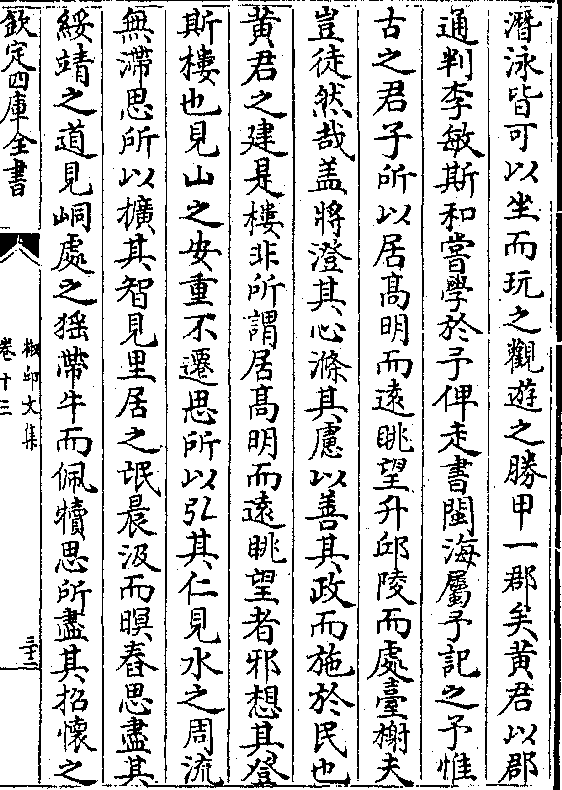 潛泳皆可以坐而玩之觀遊之勝甲一郡矣黃君以郡
通判李敏斯和嘗學於予俾走書閩海屬予記之予惟
古之君子所以居髙明而遠眺望升邱陵而處臺榭夫
豈徒然哉盖將澄其心滌其慮以善其政而施於民也
黃君之建是樓非所謂居髙明而遠眺望者邪想其登
斯樓也見山之安重不遷思所以弘其仁見水之周流
無滯思所以擴其智見里居之氓晨汲而暝舂思盡其
綏靖之道見峒處之猺帶牛而佩犢思所盡其招懷之
欽定四庫全書
椒邱文集
卷十三
三十二